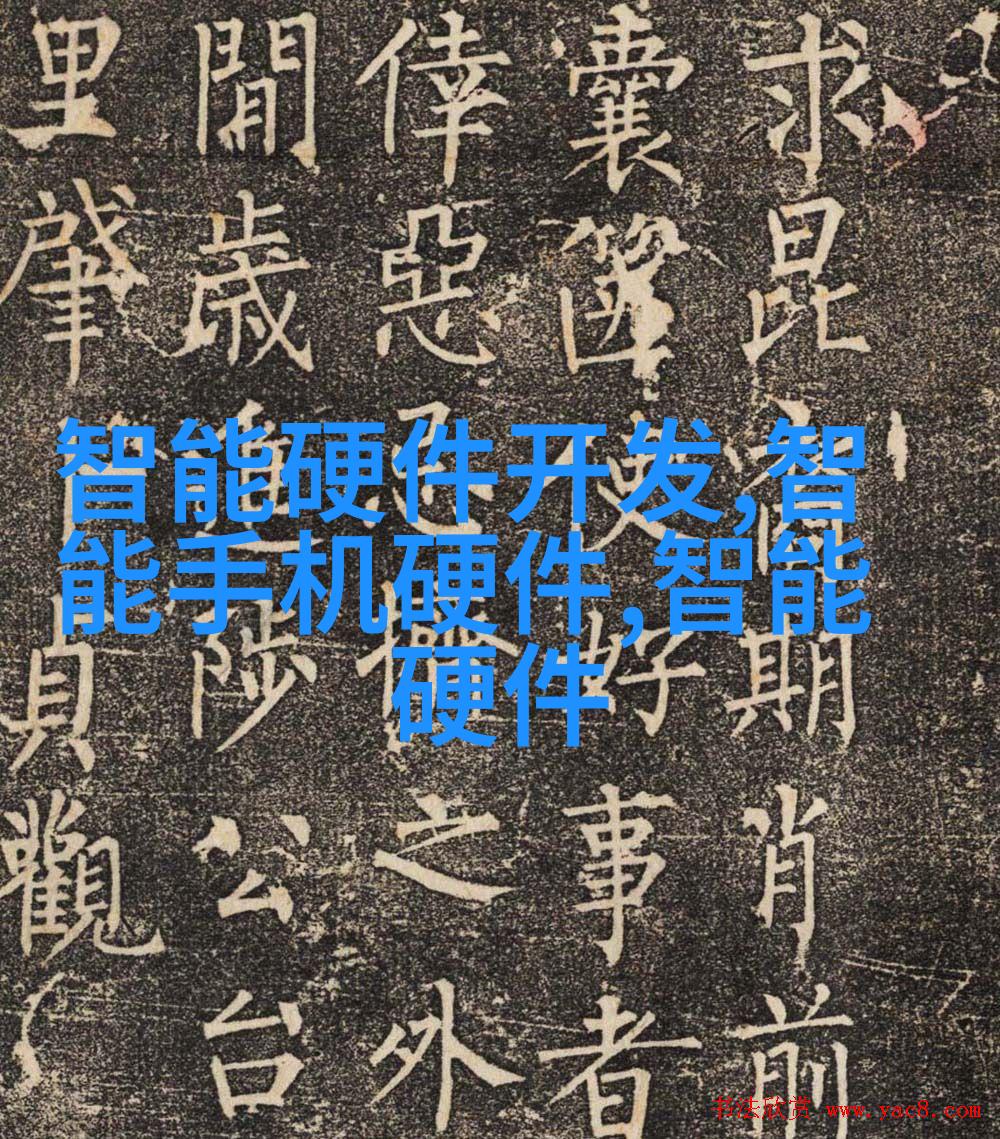 智能硬件开发,智
能手机硬件,智能
硬件
求昆期肖前
囊篋好事者
倖惡之外
閒歲陟公台
里肇貞觀
书法欣赏 www.yac8.com